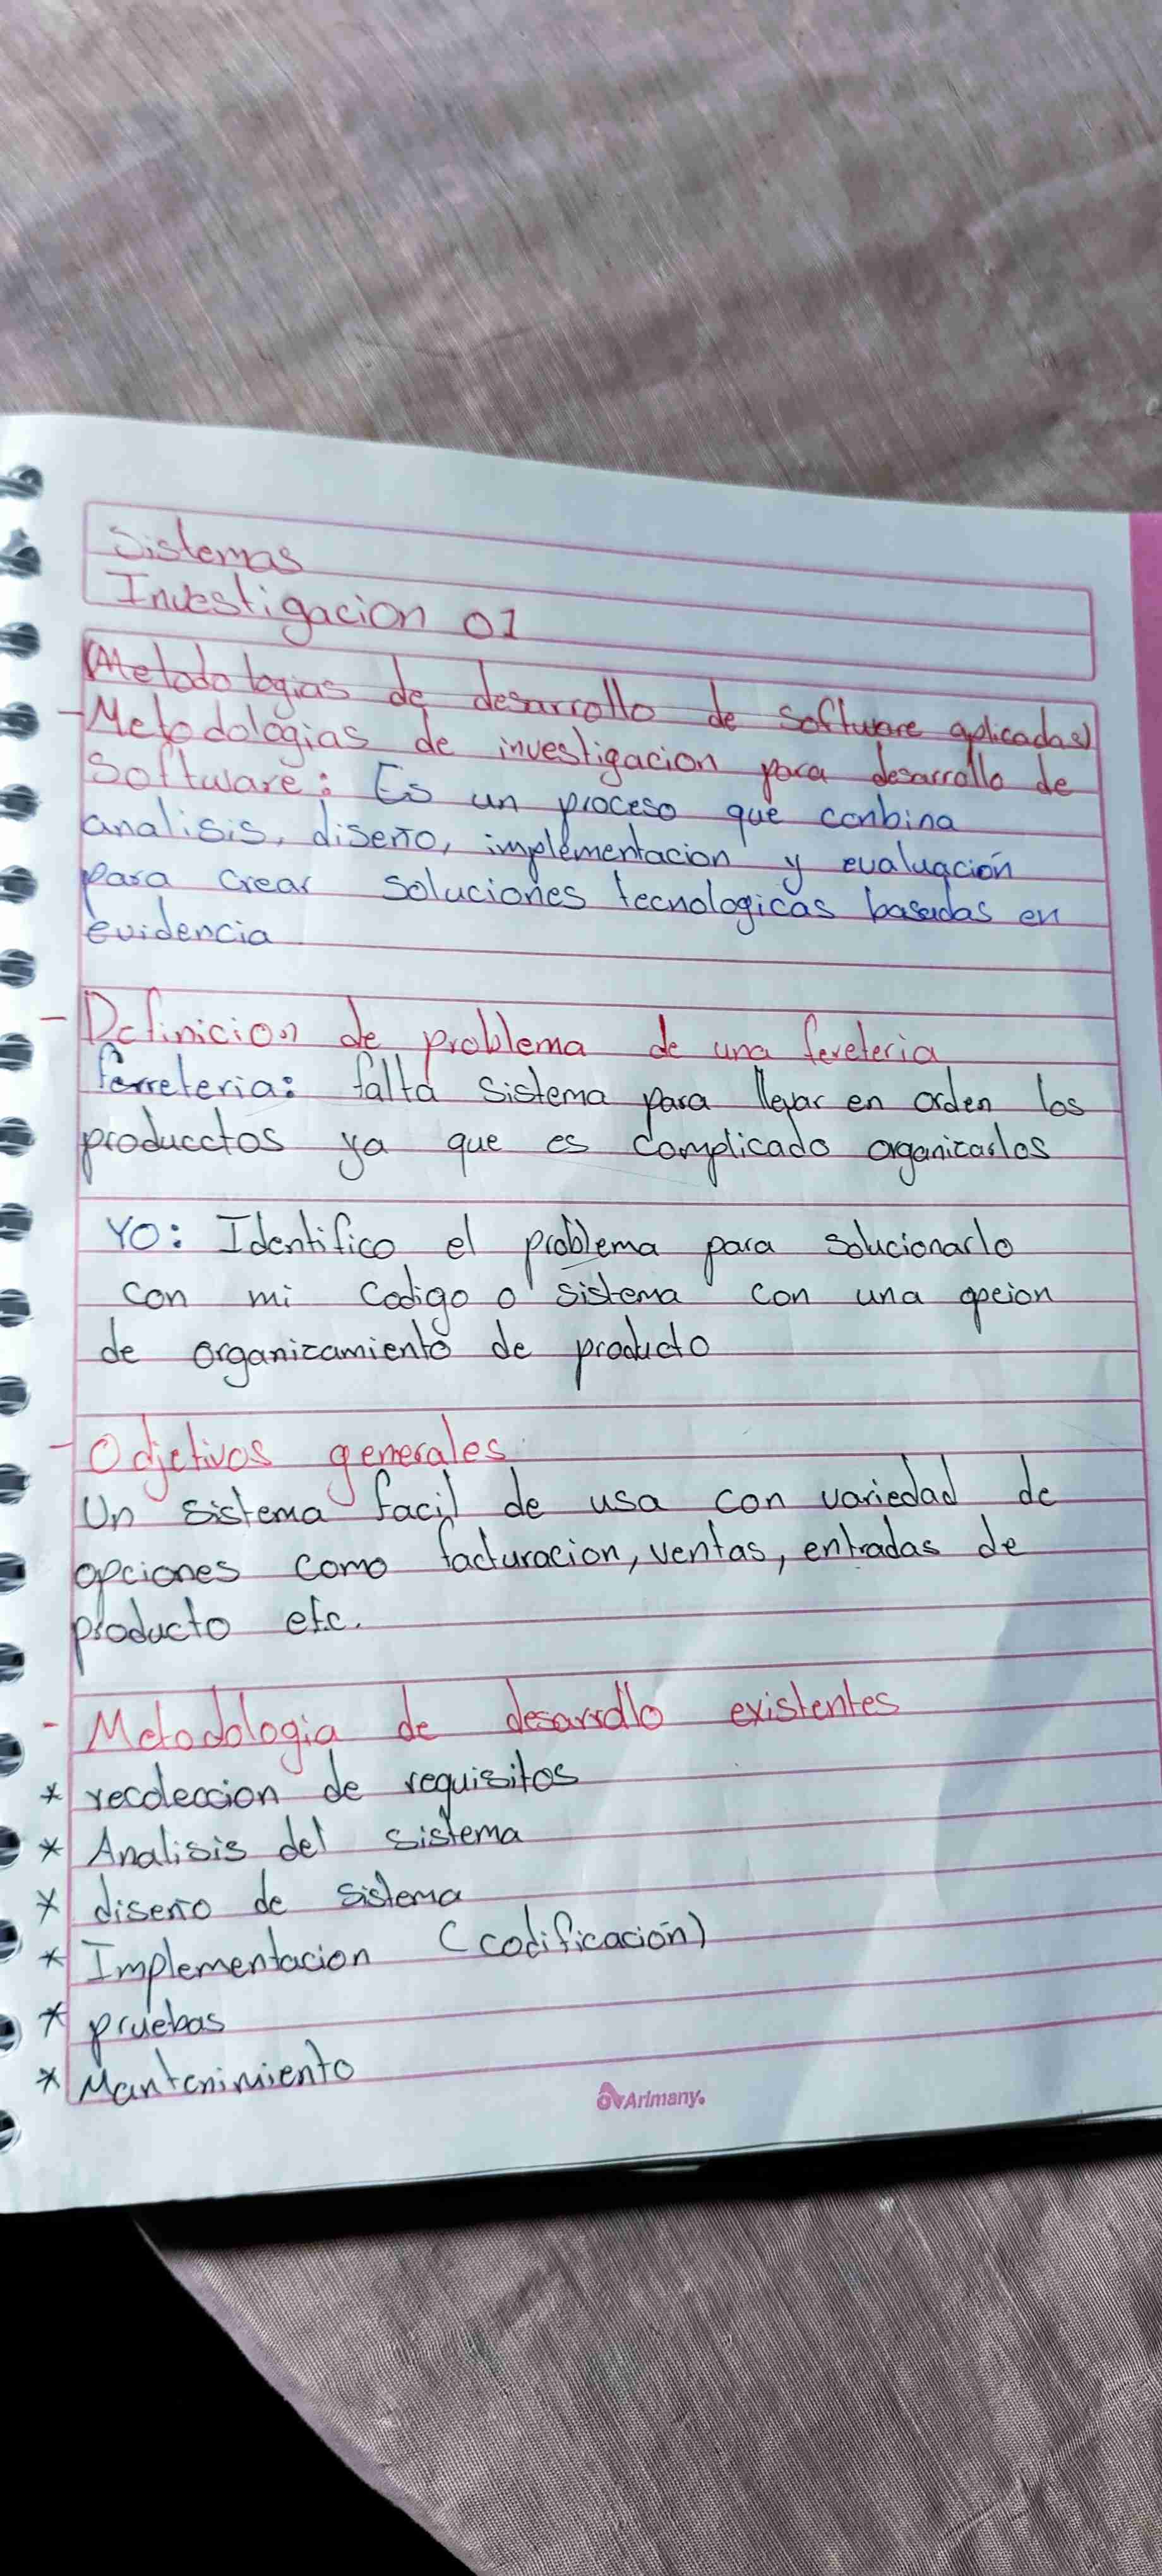 Sistemas
Investigacion 01
(Metodologias de desarrollo de software aplicadas)
- Metodologias de investigacion para desarrollo de
Software: Es un proceso que conbina
analisis, diseño, implementacion y evaluación
para crear soluciones tecnologicas basadas en
evidencia
- Definicion de problema de una fereteria
ferreteria: falta sistema para llevar en orden los
producctos ya que es complicado organizarlos
YO: Identifico el problema para solucionarlo
con mi codigo o sistema con una opcion
de organizamiento de producto
- Odjetivos generales
Un sistema facil de usa con variedad de
opciones como facturacion, ventas, entradas de
producto etc.
- Metodologia de desarrollo existentes
* recoleccion de requisitos
* Analisis del sistema
* diseño de sistema
* Implementacion (codificación)
* pruebas
* Mantenimiento
Arimany.